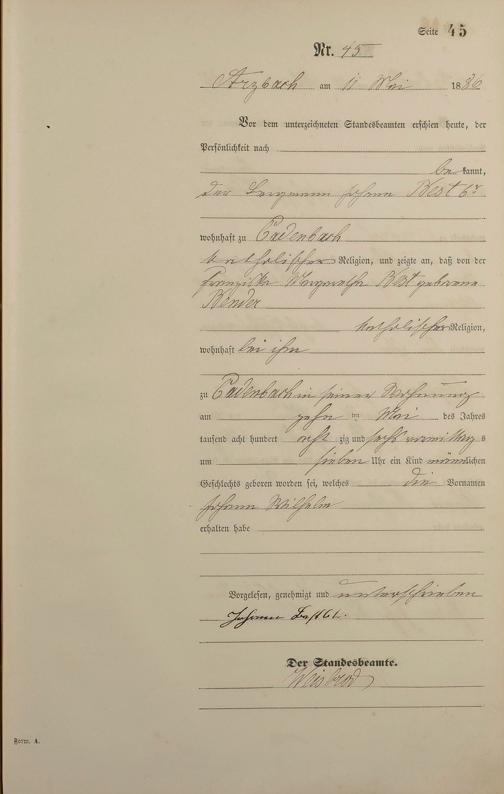 Seite 45
Nr. 45
Arzbach am 11 Mai 1886
Vor dem unterzeichneten Standesbeamten erschien heute, der
Persönlichkeit nach
be kannt,
der Bergmann Johann Best 6r
wohnhaft zu Cadenbach
katholischer Religion, und zeigte an, daß von der
Franziska Margaretha Best geborene
Bender
katholischer Religion,
wohnhaft bei ihm
zu Cadenbach in seiner Wohnung
am zehn ten Mai des Jahres
tausend acht hundert acht zig und sechs vormittag s
um sieben Uhr ein Kind männlichen
Geschlechts geboren worden sei, welches die Vornamen
Johann Wilhelm
erhalten habe
Vorgelesen, genehmigt und unterschrieben
Johann Best 6t.
Der Standesbeamte.
Weisbrod
Form. A.